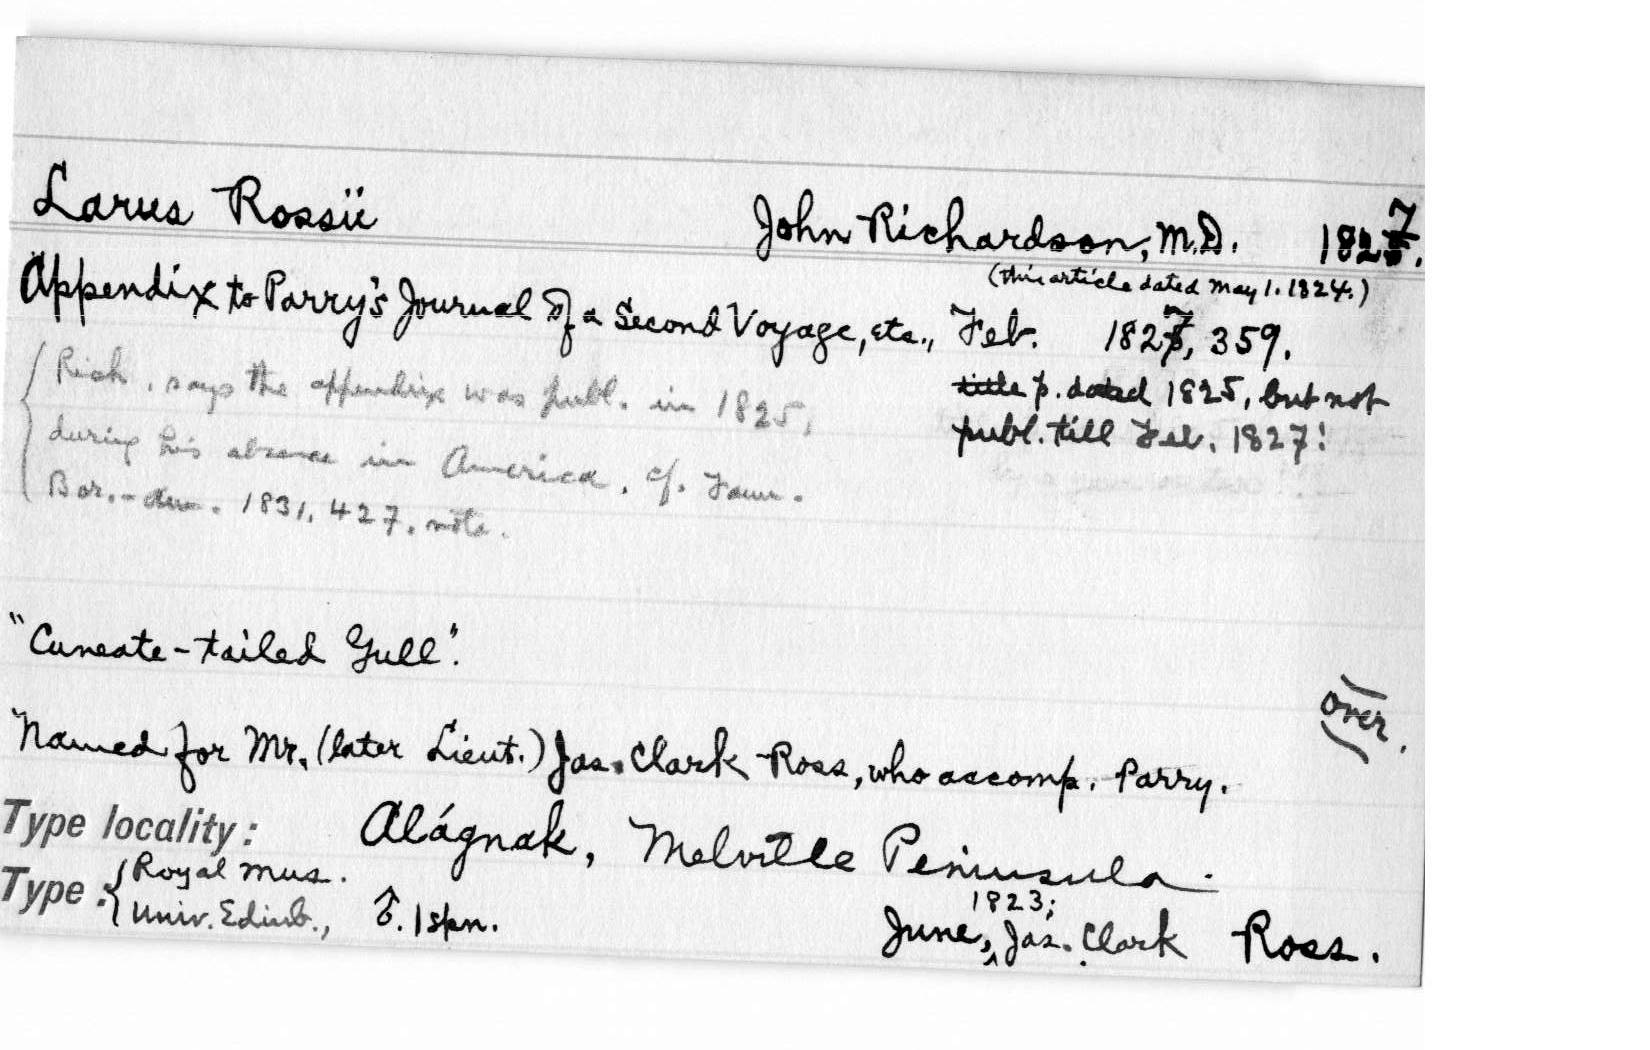 Larus Rossii John Richardson, M.D. 1827.
(this article dated May 1. 1824.)
Appendix to Parry's Journal of a Second Voyage, etc., Feb. 1827, 359.
title p. dated 1825, but not
publ. till Feb. 1827!
Rich. says the appendix was publ. in 1825,
during his absence in America. cf. Faun.
Bor.-Am. 1831, 427, note.
"Cuneate-tailed Gull".
over.
"Named for Mr. (later Lieut.) Jas. Clark Ross, who accomp. Parry.
Type locality: Alágnak, Melville Peninsula.
Type: Royal Mus.
Univ. Edinb., ♂. 1 spn. June, 1823; Jas. Clark Ross.